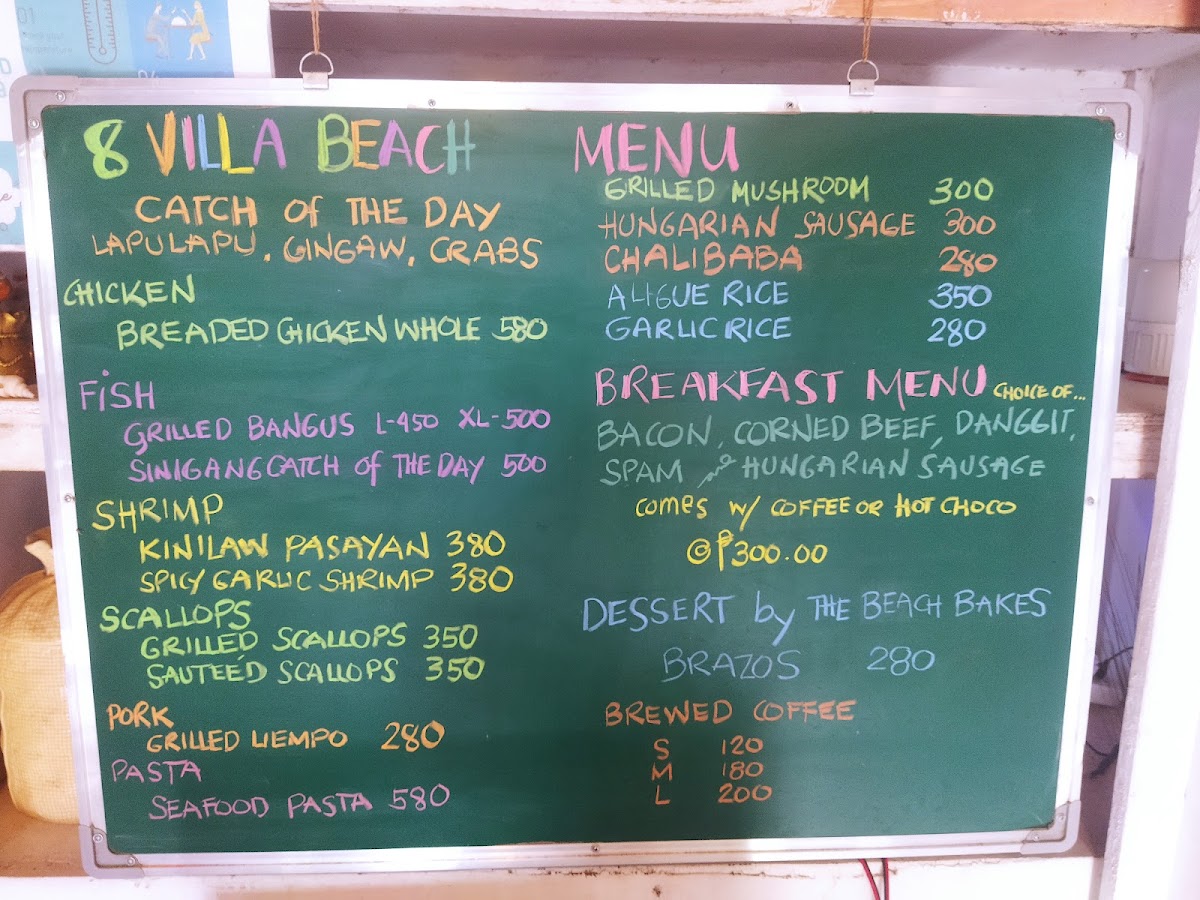 8 VILLA BEACH MENU
CATCH of THE DAY
LAPULAPU, GINGAW, CRABS
CHICKEN
BREADED CHICKEN WHOLE 580
FiSH
GRILLED BANGUS L-450 XL-500
SINIGANG CATCH of THE DAY 500
SHRIMP
KINILAW PASAYAN 380
SPICY GARLIC SHRIMP 380
SCALLOPS
GRILLED SCALLOPS 350
SAUTEÉD SCALLOPS 350
PORK
GRILLED LIEMPO 280
PASTA
SEAFOOD PASTA 580
GRILLED MUSHROOM 300
HUNGARIAN SAUSAGE 300
CHALIBABA 280
ALIGUE RICE 350
GARLIC RICE 280
BREAKFAST MENU CHOICE OF...
BACON, CORNED BEEF, DANGGIT,
SPAM HUNGARIAN SAUSAGE
comes w/ COFFEE OR HOT CHOCO
@₱300.00
DESSERT by THE BEACH BAKES
BRAZOS 280
BREWED COFFEE
S 120
M 180
L 200
01